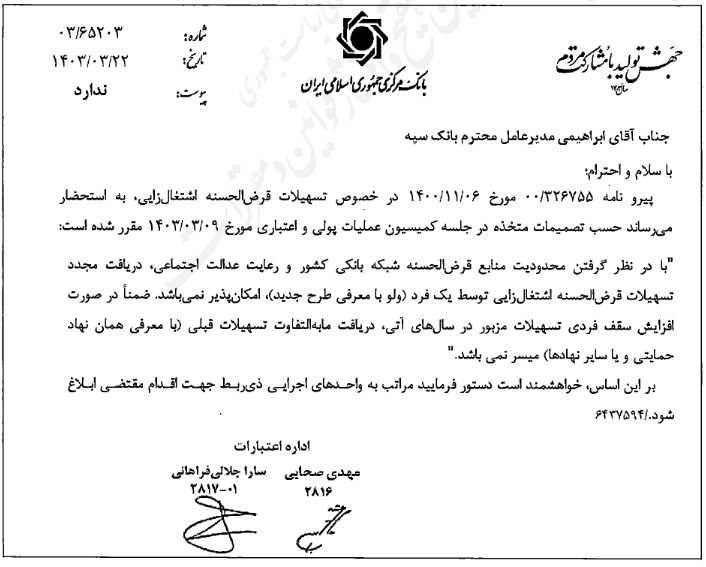 شماره: ۰۳/۶۵۲۰۳
تاریخ: ۱۴۰۳/۰۳/۲۲
پیوست: ندارد
بانک مرکزی جمهوری اسلامی ایران
جهش تولید با مشارکت مردم
جناب آقای ابراهیمی مدیرعامل محترم بانک سپه
با سلام و احترام؛
پیرو نامه ۰۰/۳۲۶۷۵۵ مورخ ۱۴۰۰/۱۱/۰۶ در خصوص تسهیلات قرض‌الحسنه اشتغال‌زایی، به استحضار
می‌رساند حسب تصمیمات متخذه در جلسه کمیسیون عملیات پولی و اعتباری مورخ ۱۴۰۳/۰۳/۰۹ مقرر شده است:
"با در نظر گرفتن محدودیت منابع قرض‌الحسنه شبکه بانکی کشور و رعایت عدالت اجتماعی، دریافت مجدد
تسهیلات قرض‌الحسنه اشتغال‌زایی توسط یک فرد (ولو با معرفی طرح جدید)، امکان‌پذیر نمی‌باشد. ضمناً در صورت
افزایش سقف فردی تسهیلات مزبور در سال‌های آتی، دریافت مابه‌التفاوت تسهیلات قبلی (با معرفی همان نهاد
حمایتی و یا سایر نهادها) میسر نمی باشد."
بر این اساس، خواهشمند است دستور فرمایید مراتب به واحدهای اجرایی ذی‌ربط جهت اقدام مقتضی ابلاغ
شود./۶۴۳۷۵۹۴
اداره اعتبارات
مهدی صحابی سارا جلالی‌فراهانی
۲۸۱۶ ۲۸۱۷-۰۱